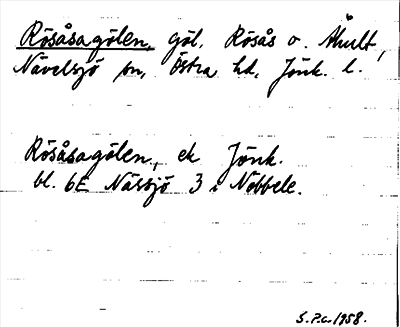 Rösåsagölen, göl, Rösås o. Åhult,
Nävelsjö sn, Östra hd, Jönk. l.
Rösåsagölen, ek Jönk.
bl. 6E Nässjö 3 i Nobbele.
S.P.G. 1958.